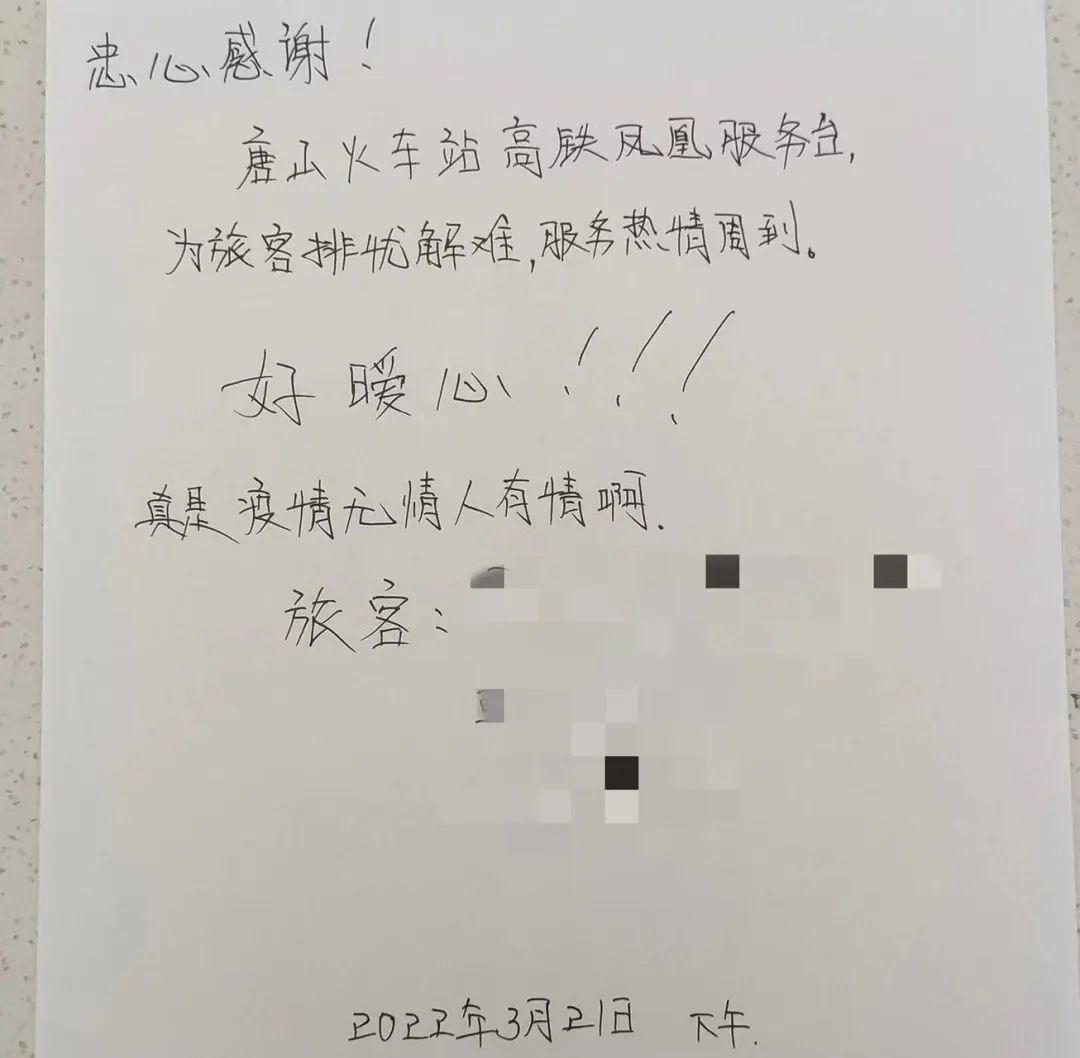 忠心感谢！
唐山火车站高铁凤凰服务台,
为旅客排忧解难,服务热情周到。
好暖心！！！
真是疫情无情人有情啊.
旅客：
2022年3月21日 下午.